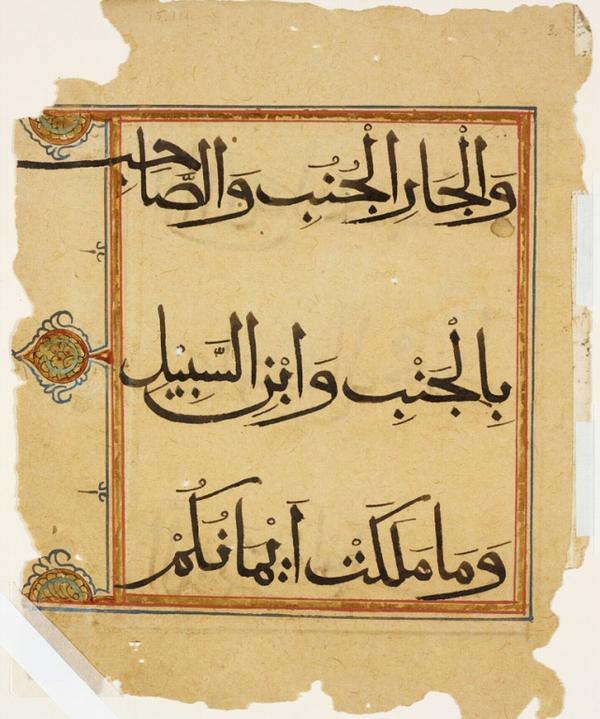 وَالْجَارِ الْجُنُبِ وَالصَّاحِبِ
بِالْجَنْبِ وَابْنِ السَّبِيْلِ
وَمَا مَلَكَتْ اَيْمَانُكُمْ